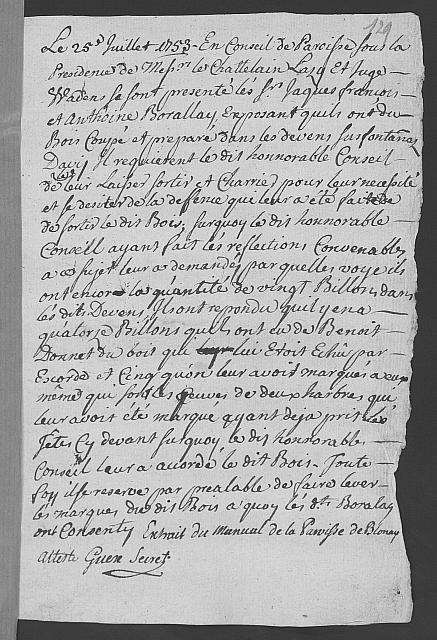 129
Le 25e Juillet 1753 En Conseil de Paroisse sous la
Presidence de Messr. le Chattelain Et Juge
Wadens se sont presenté les Sr. Jaques francois
et Anthoine Borallay, Exposant quils ont du
Bois Coupé et preparé dans les devens sus fontanaz
David Il requierent le dit honnorable Conseil
de leur Laisser sortir et Charrier pour leur necessité
et se desister de la deffence qui leur a été faitte
de sortir le dit Bois, surquoy le dit honnorable
Conseil ayant fait les reflections Convenables
a ce sujet leur a demandés par quelles voye ils
ont encore la quantité de vingt Billons dans
les dits Devens, Ils ont repondu quil y en a
quatorze Billons quils ont eu de Benoit
Donnet du bois qui lui Etoit Echû par
Escorde et Cinq quon leur avoit marqués a eux
même qui sont les de deux harbres qui
leur avoit été marque ayant deja pris les
Têtes Cy devant surquoy le dit honnorable
Conseil leur a accordé le dit Bois. Toute
foy il se reserve par prealable de faire lever
les marques du dit Bois a quoy les ds. Boralay
ont Consenty Extrait du Manual de la Paroisse de Blonay
Atteste Guex Secret